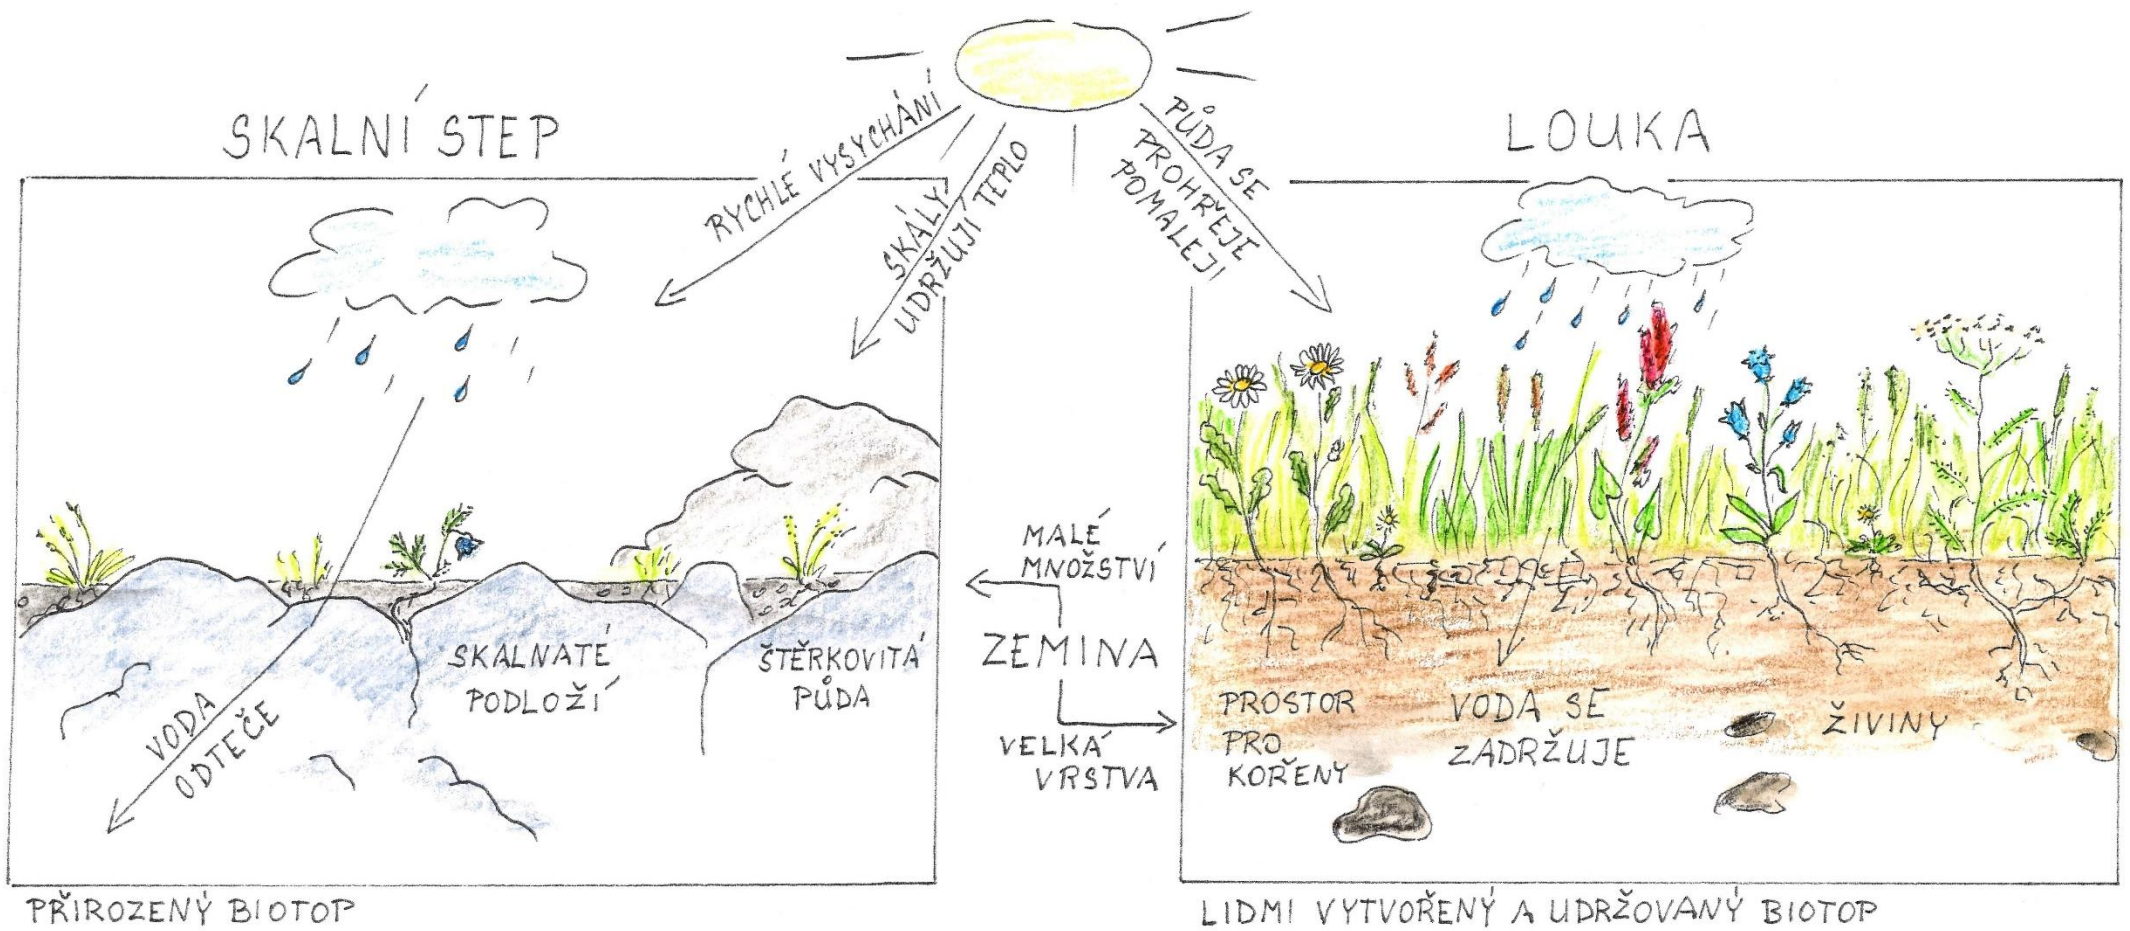 SKALNÍ STEP
RYCHLÉ VYSYCHÁNÍ
SKÁLY
UDRŽUJÍ TEPLO
PŮDA SE
PROHŘEJE
POMALEJI
LOUKA
SKALNATÉ
PODLOŽÍ
ŠTĚRKOVITÁ
PŮDA
VODA
ODTEČE
MALÉ
MNOŽSTVÍ
ZEMINA
VELKÁ
VRSTVA
PROSTOR
PRO
KOŘENY
VODA SE
ZADRŽUJE
ŽIVINY
PŘIROZENÝ BIOTOP
LIDMI VYTVOŘENÝ A UDRŽOVANÝ BIOTOP